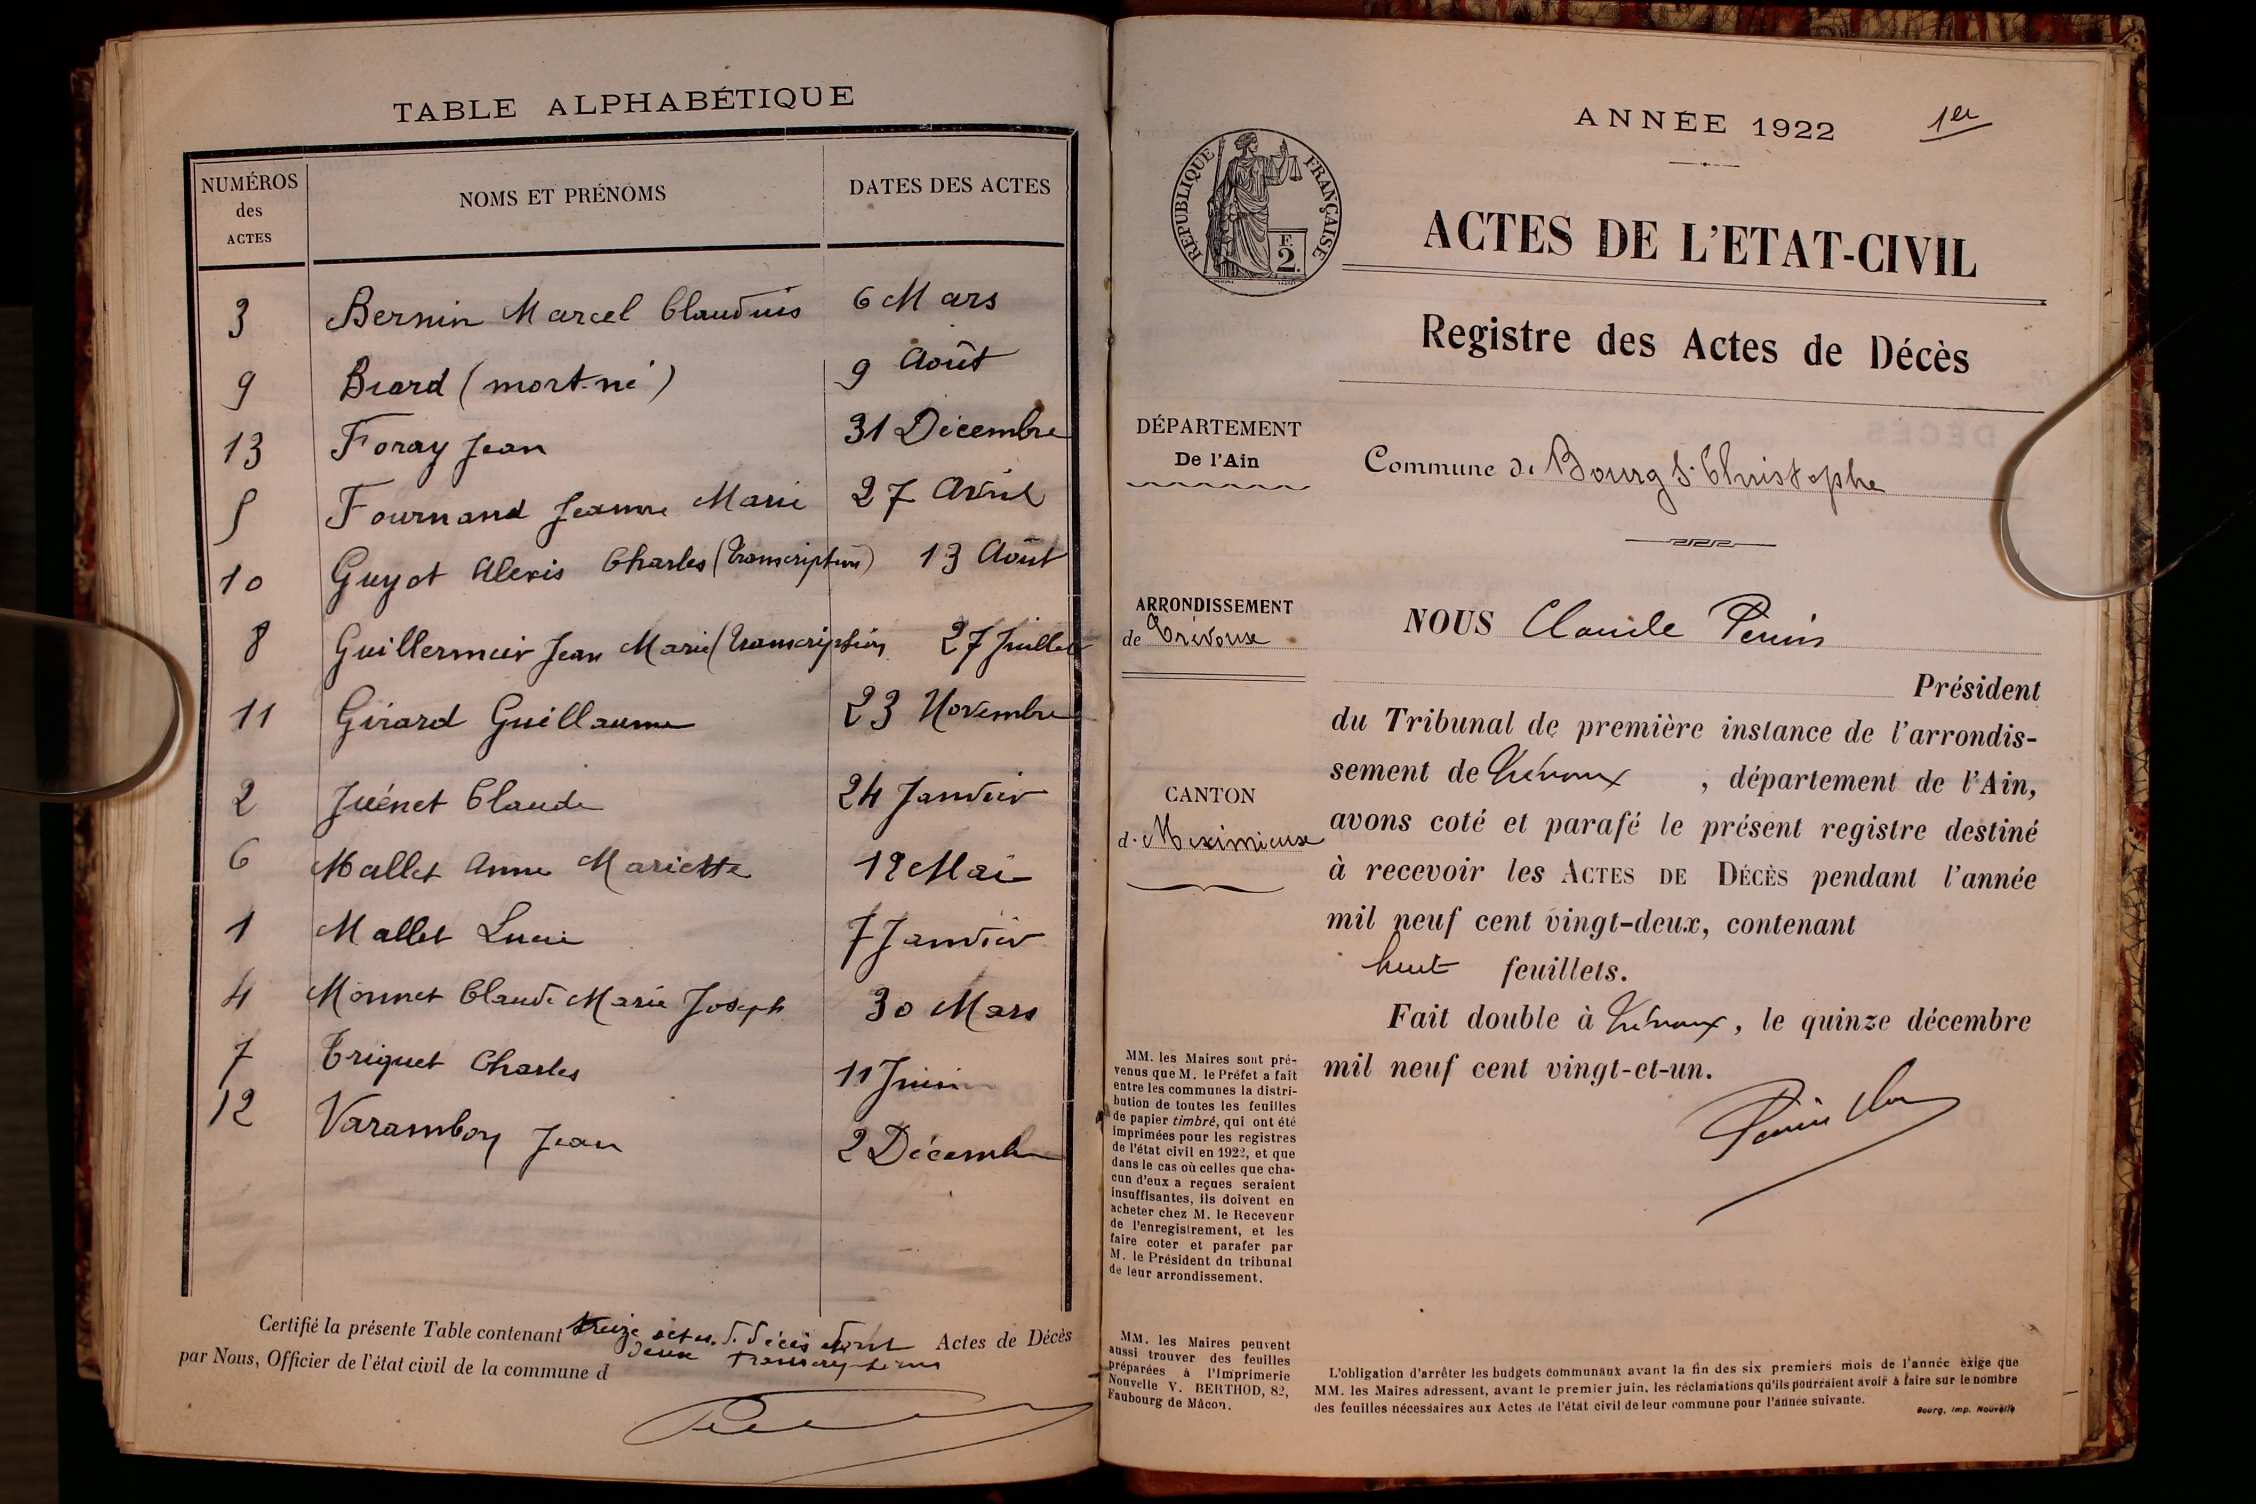 TABLE ALPHABÉTIQUE
NUMÉROS
des
ACTES
NOMS ET PRÉNOMS
DATES DES ACTES
3 Bernin Marcel Claudius 6 Mars
9 Biard (mort-né) 9 Août
13 Foray Jean 31 Décembre
5 Fournand Jeanne Marie 27 Avril
10 Guyot Alexis Charles (Transcription) 13 Août
8 Guillermin Jean Marie (Transcription 27 Juillet
11 Girard Guillaume 23 Novembre
2 Juénet Claude 24 Janvier
6 Mallet Anne Mariette 12 Mai
1 Mallet Lucie 7 Janvier
4 Monnet Claude Marie Joseph 30 Mars
7 Triquet Charles 11 Juin
12 Varamboy Jean 2 Décembre
Certifié la présente Table contenant treize actes de décès dont Actes de Décès
deux transcriptions
par Nous, Officier de l'état civil de la commune d
ANNÉE 1922
1er
RÉPUBLIQUE FRANÇAISE
F.
2.
ACTES DE L'ETAT-CIVIL
Registre des Actes de Décès
DÉPARTEMENT
De l'Ain
Commune de Bourg St Christophe
ARRONDISSEMENT
de Trévoux
CANTON
de Meximieux
NOUS Claude Perrin
Président
du Tribunal de première instance de l'arrondis-
sement de Trévoux, département de l'Ain,
avons coté et parafé le présent registre destiné
à recevoir les ACTES DE DÉCÈS pendant l'année
mil neuf cent vingt-deux, contenant
huit feuillets.
Fait double à Trévoux, le quinze décembre
mil neuf cent vingt-et-un.
MM. les Maires sont pré-
venus que M. le Préfet a fait
entre les communes la distri-
bution de toutes les feuilles
de papier timbré, qui ont été
imprimées pour les registres
de l'état civil en 1922, et que
dans le cas où celles que cha-
cun d'eux a reçues seraient
insuffisantes, ils doivent en
acheter chez M. le Receveur
de l'enregistrement, et les
faire coter et parafer par
M. le Président du tribunal
de leur arrondissement.
MM. les Maires peuvent
aussi trouver des feuilles
préparées à l'Imprimerie
Nouvelle V. BERTHOD, 82,
Faubourg de Mâcon.
L'obligation d'arrêter les budgets communaux avant la fin des six premiers mois de l'année exige que
MM. les Maires adressent, avant le premier juin, les réclamations qu'ils pourraient avoir à faire sur le nombre
des feuilles nécessaires aux Actes de l'état civil de leur commune pour l'année suivante.
Bourg, Imp. Nouvelle